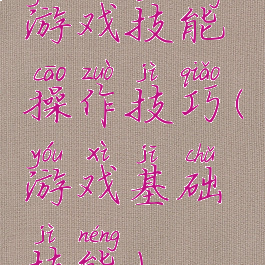 游戏技能
cāo zuò jì qiǎo
操作技巧(
yóu xì jī chǔ
游戏基础
jì néng
技能)